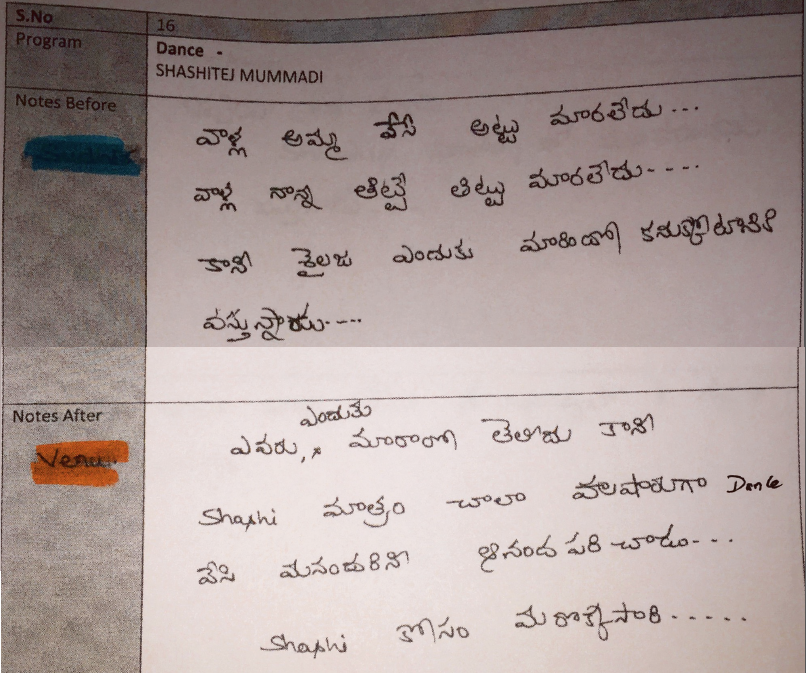 S.No 16
Program Dance -
SHASHITEJ MUMMADI
Notes Before వాళ్ల అమ్మ వేసే అట్టు మారలేదు...
వాళ్ల నాన్న తిట్టే తిట్టు మారలేదు....
కాని శైలజ ఎందుకు మారిందో కనుక్కోటానికి
వస్తున్నాడు....
Notes After ఎందుకు
Venu ఎవరు, x మారారో తెలీదు కాని
Shashi మాత్రం చాలా హుషారుగా Dance
వేసి మనందరిని ఆనంద పరిచాడు...
Shashi కోసం మరొక్కసారి......